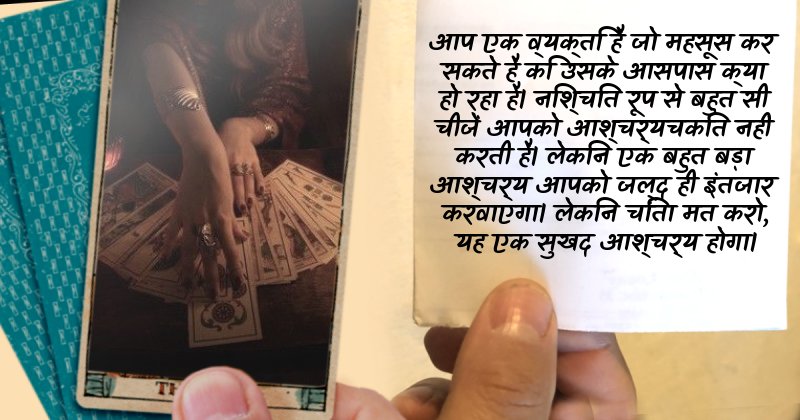 आप एक व्यक्ति हैं जो महसूस कर
सकते हैं कि उसके आसपास क्या
हो रहा है। निश्चित रूप से बहुत सी
चीजें आपको आश्चर्यचकित नहीं
करती हैं। लेकिन एक बहुत बड़ा
आश्चर्य आपको जल्द ही इंतजार
करवाएगा। लेकिन चिंता मत करो,
यह एक सुखद आश्चर्य होगा।
TH